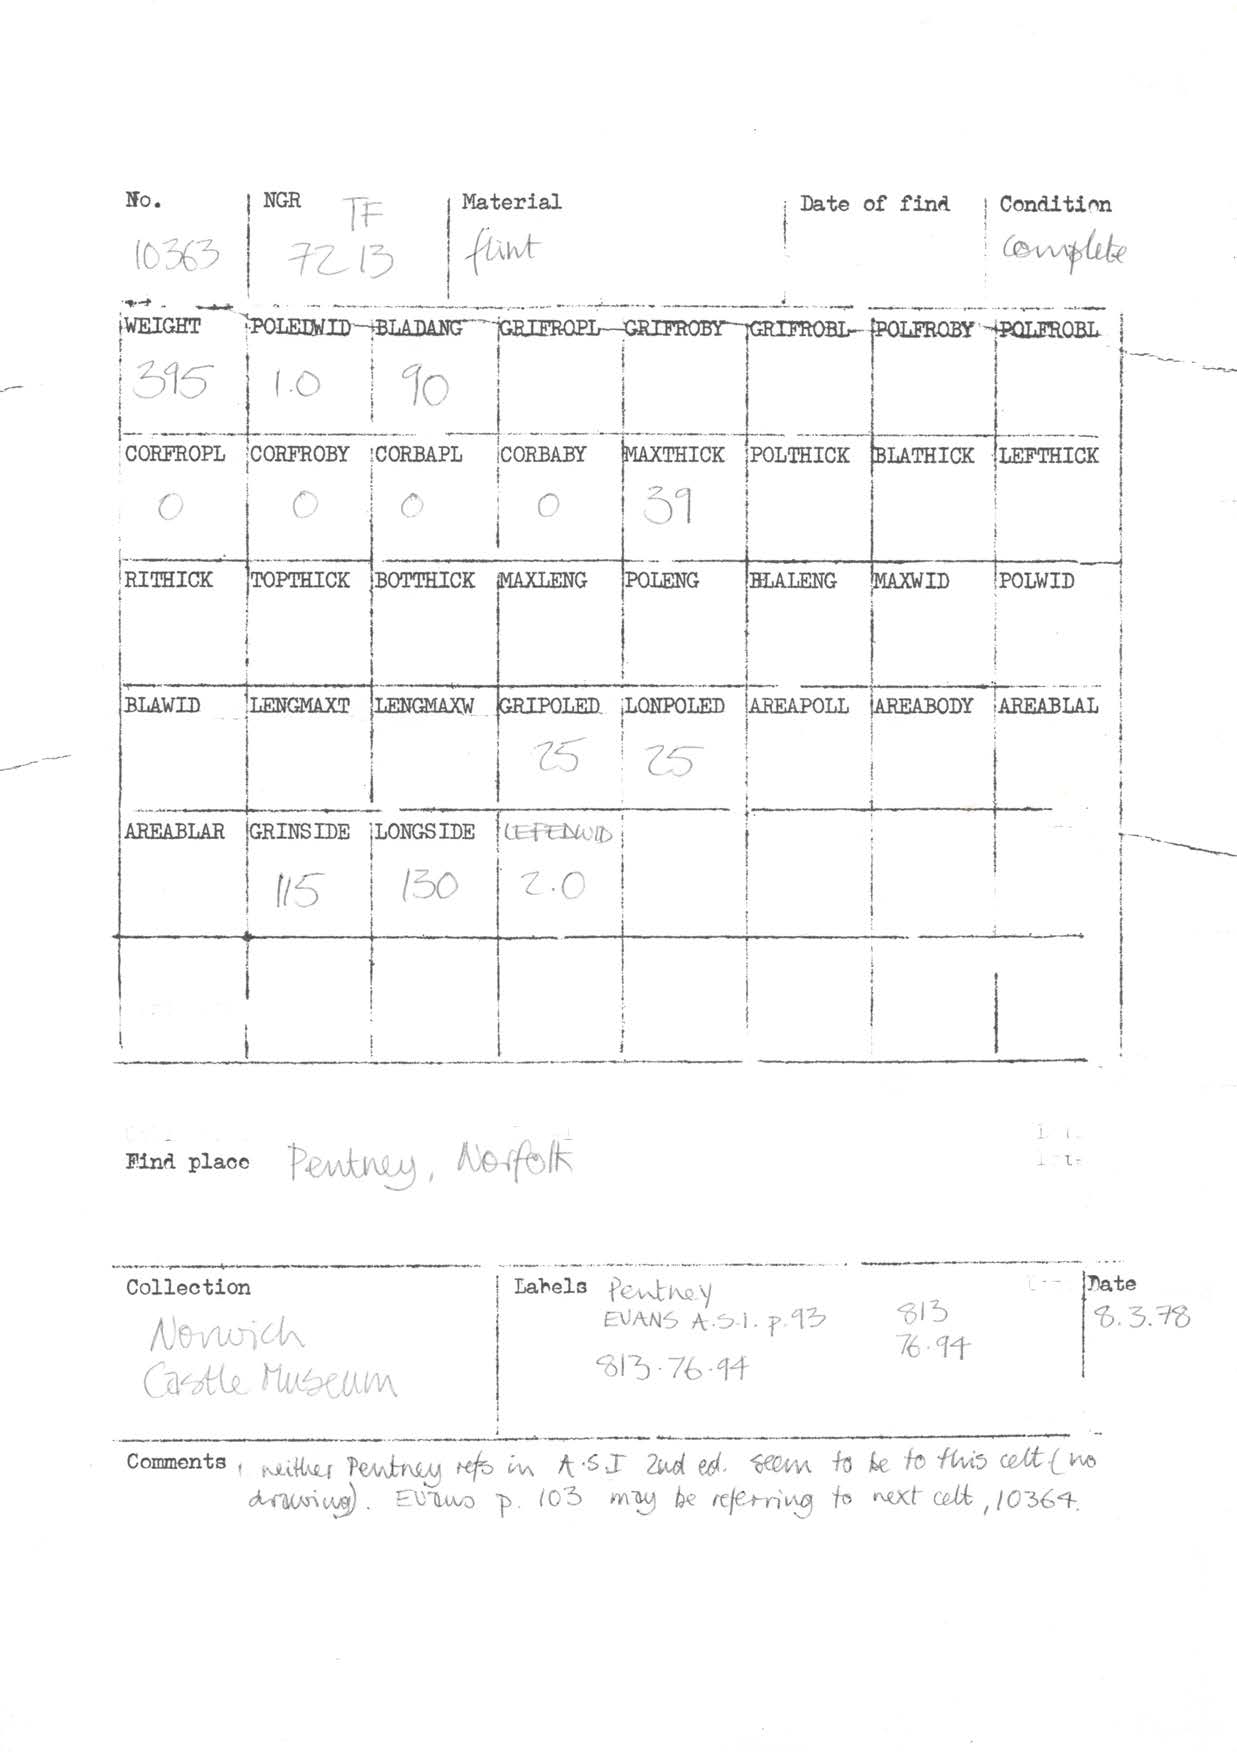 No. NGR TF Material Date of find Condition
10363 72 13 flint complete
WEIGHT POLEDWID BLADANG GRIFROPL GRIFROBY GRIFROBL POLFROBY POLFROBL
395 1.0 90
CORFROPL CORFROBY CORBAPL CORBABY MAXTHICK POLTHICK BLATHICK LEFTHICK
0 0 0 0 39
RITHICK TOPTHICK BOTTHICK MAXLENG POLENG BLALENG MAXWID POLWID
BLAWID LENGMAXT LENGMAXW GRIPOLED LONPOLED AREAPOLL AREABODY AREABLAL
25 25
AREABLAR GRINSIDE LONGSIDE LEFEDWID
115 130 2.0
Find place Pentney, Norfolk
Collection Labels Pentney Date
Norwich EVANS A.S.I. p.93 813 8.3.78
Castle Museum 813.76.94 76.94
Comments neither Pentney refs in A.S.I 2nd ed. seem to be to this celt (no
drawing). Evans p. 103 may be referring to next celt, 10364.